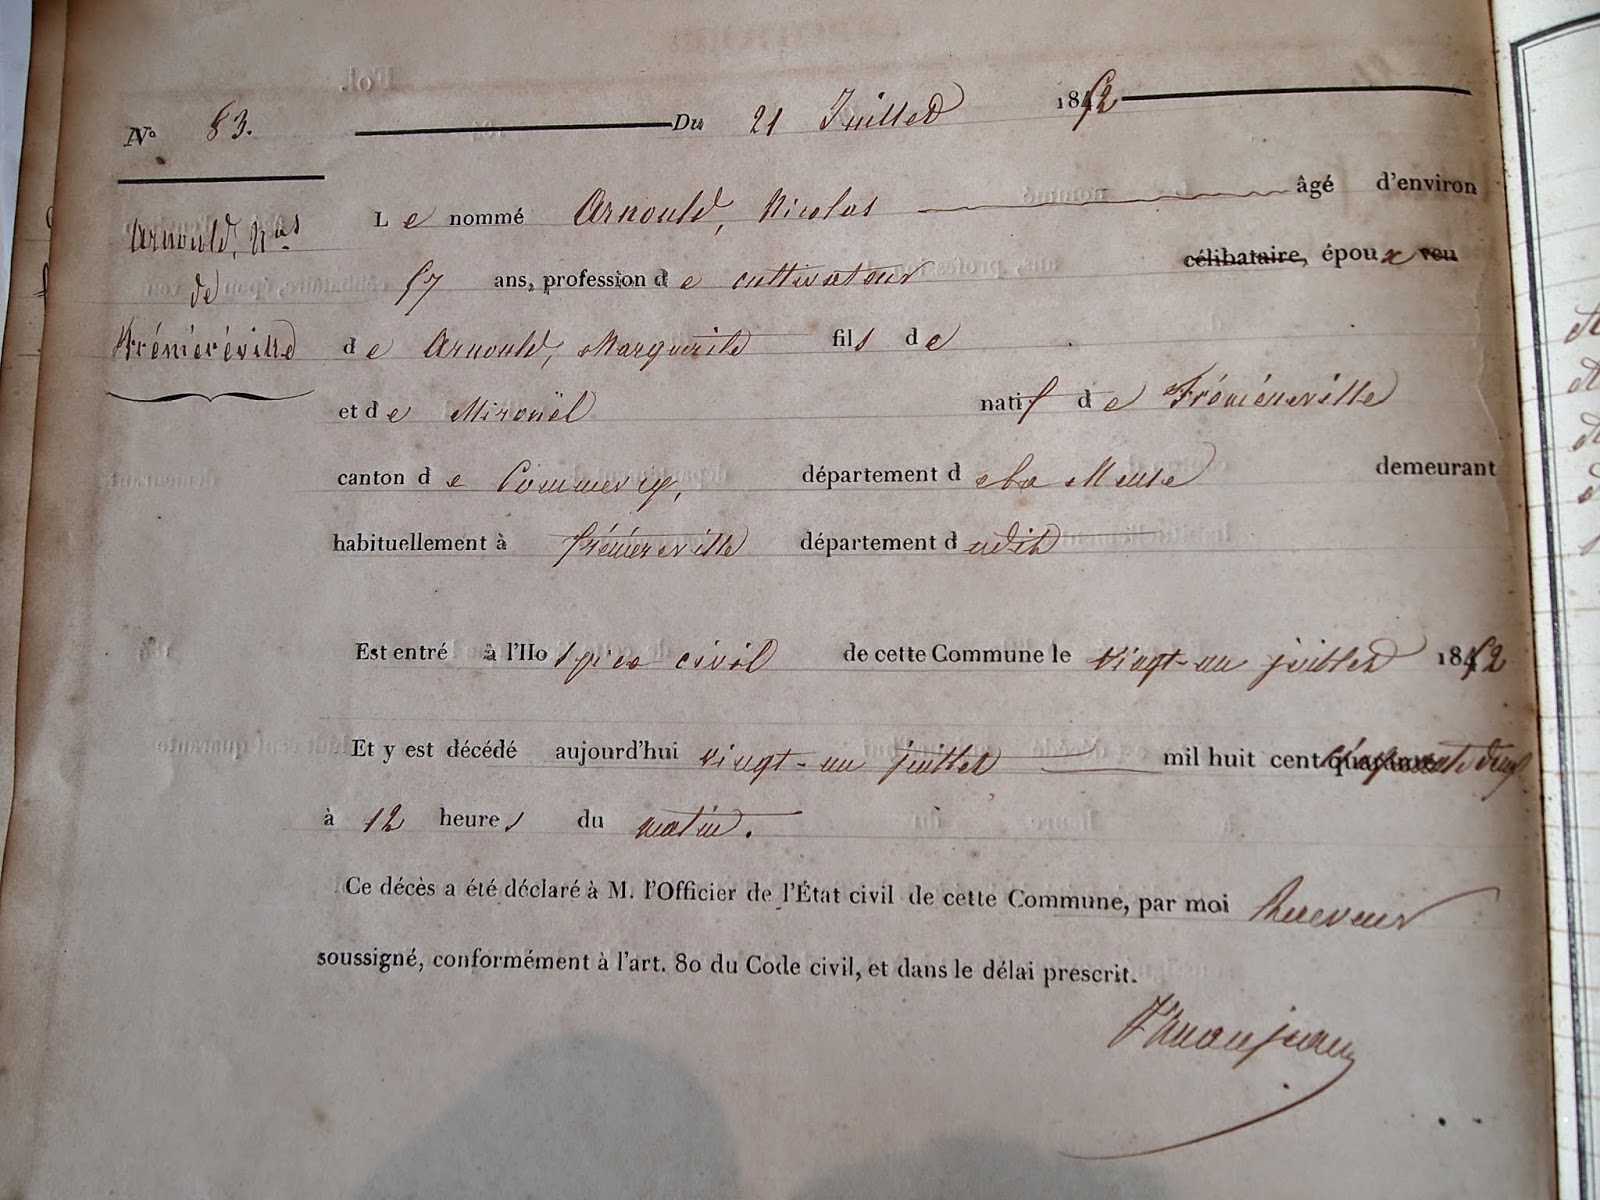 N° 83. Du 21 Juillet 1852
Arnould, Nas
de
Fréméréville
Le nommé Arnould, Nicolas âgé d'environ
57 ans, profession de cultivateur célibataire, époux veu
de Arnould, Marguerite fils de
et de Mirouël natif de Fréméréville
canton de Commercy, département de la Meuse demeurant
habituellement à fréméréville département dudit
Est entré à l'Hospice civil de cette Commune le vingt-un juillet 1852
Et y est décédé aujourd'hui vingt-un juillet mil huit cent cinquante deux
à 12 heures du matin.
Ce décès a été déclaré à M. l'Officier de l'État civil de cette Commune, par moi Receveur
soussigné, conformément à l'art. 80 du Code civil, et dans le délai prescrit.